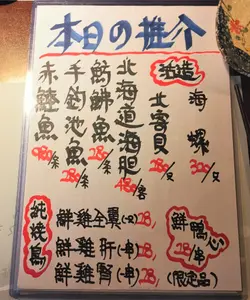 本日の推介
活造
海螺
北寄貝
280/只
北海道海胆
480/客
魴鮄魚
280/条
手釣池魚
280/条
赤鯥魚
純焼鳥
鮮雞全翼(只)28,
鮮雞肝(一串)28,
鮮雞腎(一串)28,
鮮鴨心
28/串
(限定品)